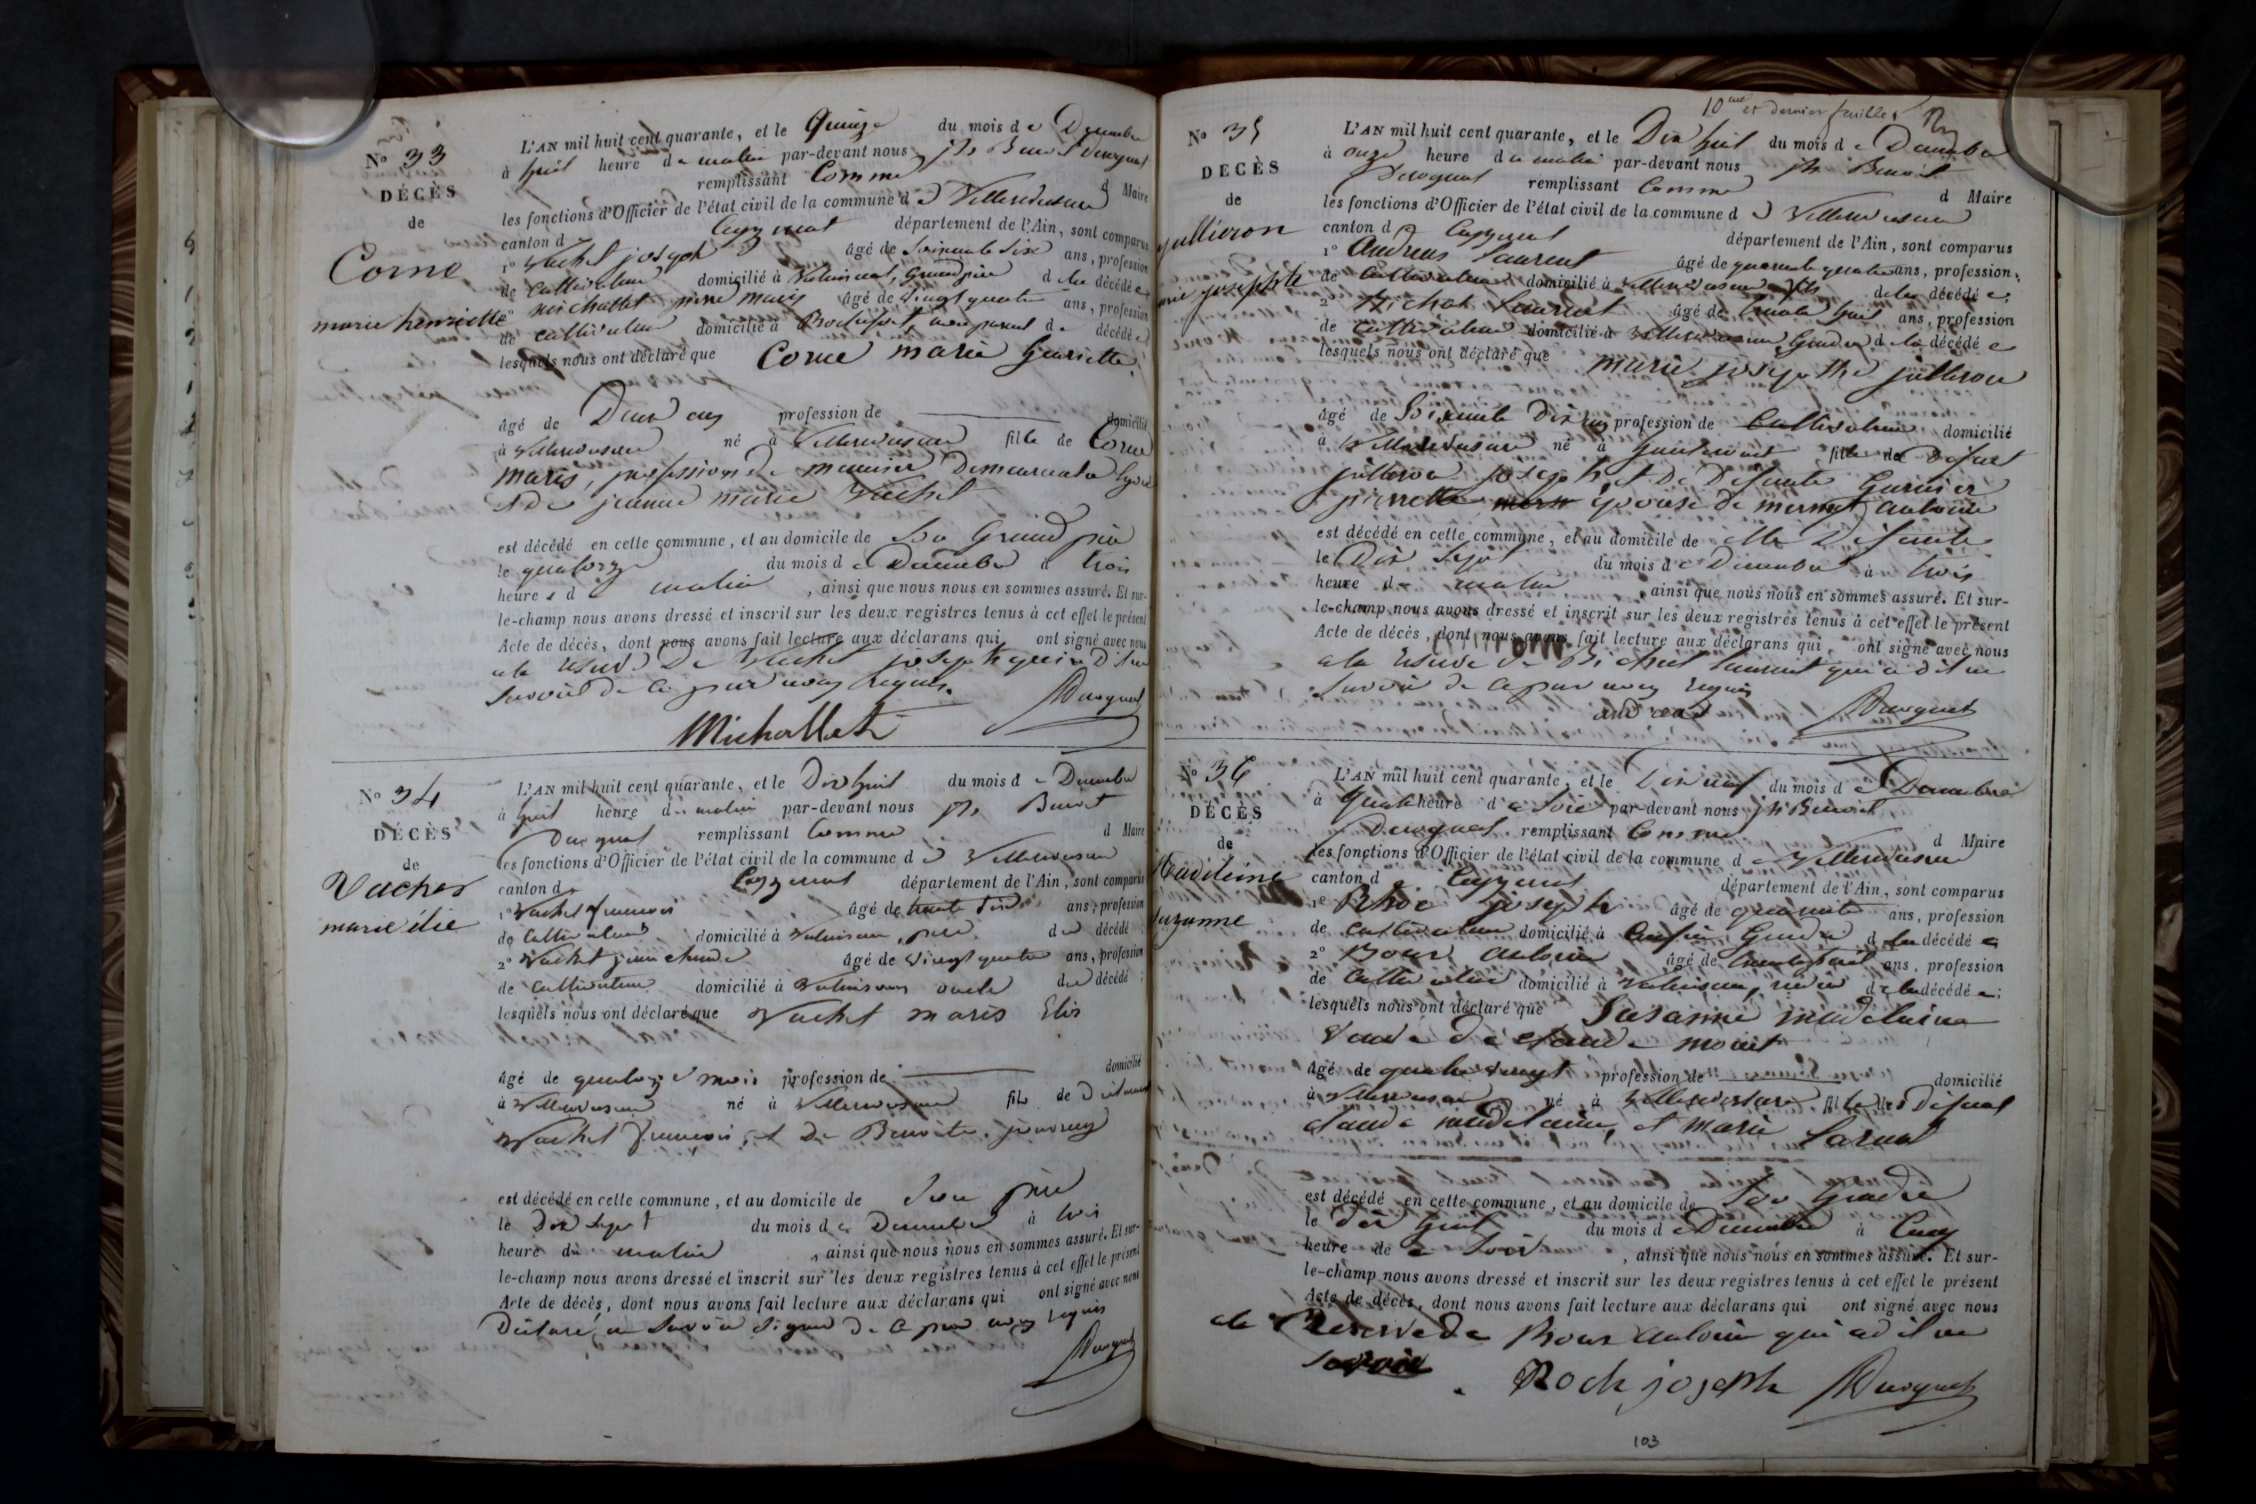 N° 33
DÉCÈS
de
Corne
marie henriette
L'AN mil huit cent quarante, et le Quinze du mois de Décembre
à huit heure du matin par-devant nous Benoit Durquet
remplissant Comme d Maire
les fonctions d'Officier de l'état civil de la commune d Villereversure
canton d Ceyzeriat département de l'Ain, sont comparus
1° Vachet joseph âgé de Soixante Six ans, profession
de Cultivateur domicilié à grand père de la décédée
2° Michallet marie âgé de Vingt quatre ans, profession
de cultivateur domicilié à non parent de décédé
lesquels nous ont déclaré que Corne marie henriette
âgé de Deux ans profession de domicilié
à Villereversure né à Villereversure fille de Corne
marie, profession de meunier Demeurant à
et de jeanne marie Vachet
est décédé en cette commune, et au domicile de Son Grand père
le quatorze du mois de Décembre à trois
heures d matin, ainsi que nous nous en sommes assuré. Et sur-
le-champ nous avons dressé et inscrit sur les deux registres tenus à cet effet le présent
Acte de décès, dont nous avons fait lecture aux déclarans qui ont signé avec nous
a la Réserve De Vachet joseph qui a dit ne
Savoir de ce par nous Requis.
Michallet Durquet
N° 34
DÉCÈS
de
Vachet
marie élie
L'AN mil huit cent quarante, et le Dix huit du mois de Décembre
à huit heure du matin par-devant nous Benoit
Durquet remplissant Comme d Maire
les fonctions d'Officier de l'état civil de la commune d Villereversure
canton d Ceyzeriat département de l'Ain, sont comparus
1° Vachet francois âgé de trente ans, profession
de Cultivateur domicilié à père du décédé
2° Vachet jean claude âgé de Vingt quatre ans, profession
de Cultivateur domicilié à oncle du décédé
lesquels nous ont déclaré que Vachet marie Elie
âgé de quatorze mois profession de domicilié
à Villereversure né à Villereversure fils de
Vachet francois, et De Benoite
est décédé en cette commune, et au domicile de Son père
le Dix Sept du mois de Décembre à trois
heure du matin, ainsi que nous nous en sommes assuré. Et sur-
le-champ nous avons dressé et inscrit sur les deux registres tenus à cet effet le présent
Acte de décès, dont nous avons fait lecture aux déclarans qui ont signé avec nous
Déclaré ne Savoir Signer De ce par nous requis
Durquet
10me et dernier feuillet
N° 35
DÉCÈS
de
jullieron
josephte
L'AN mil huit cent quarante, et le Dix huit du mois de Décembre
à onze heure du matin par-devant nous Benoit
Durquet remplissant Comme d Maire
les fonctions d'Officier de l'état civil de la commune d Villereversure
canton d Ceyzeriat département de l'Ain, sont comparus
1° Andreas Laurent âgé de quarante quatre ans, profession
de Cultivateur domicilié à Villereversure fils de la décédée
2° Bichat Laurent âgé de trente huit ans, profession
de Cultivateur domicilié à Villereversure Gendre de la décédée
lesquels nous ont déclaré que marie josephthe jullieron
âgé de Soixante Dix ans profession de Cultivateur domicilié
à Villereversure né à fille de Defunt
jullieron joseph et De Defunte Garnier
pierrette epouse De mermet antoine
est décédé en cette commune, et au domicile de elle Defunte
le Dix Sept du mois de Décembre à trois
heure de matin, ainsi que nous nous en sommes assuré. Et sur-
le-champ nous avons dressé et inscrit sur les deux registres tenus à cet effet le présent
Acte de décès, dont nous avons fait lecture aux déclarans qui ont signé avec nous
a la Réserve de Bichat Laurent qui a dit ne
Savoir de ce par nous Requis
andreas Durquet
N° 36
DÉCÈS
de
Madeleine
Suzanne
L'AN mil huit cent quarante, et le Dix neuf du mois de Décembre
à Quatre heure de Soir par-devant nous Benoit
Durquet remplissant Comme d Maire
les fonctions d'Officier de l'état civil de la commune d Villereversure
canton d Ceyzeriat département de l'Ain, sont comparus
1° Rhoc joseph âgé de quarante ans, profession
de cultivateur domicilié à Gendre de la décédée
2° Roux antoine âgé de trente huit ans, profession
de Cultivateur domicilié à de la décédée
lesquels nous ont déclaré que Susanne madelaine
Veuve De claude monet
âgé de quatre vingt profession de domicilié
à Villereversure né à Villereversure fille des Defunt
claude madelaine, et marie Larnat
est décédé en cette commune, et au domicile de Son Gendre
le dix huit du mois de Décembre à Cinq
heure de Soir, ainsi que nous nous en sommes assuré. Et sur-
le-champ nous avons dressé et inscrit sur les deux registres tenus à cet effet le présent
Acte de décès, dont nous avons fait lecture aux déclarans qui ont signé avec nous
a la Réserve de Roux antoine qui a dit ne
Savoir
Roch joseph Durquet
103